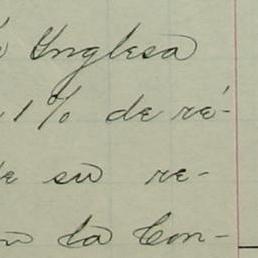 Ynglesa
1% de ré-
de su re-
la Con-